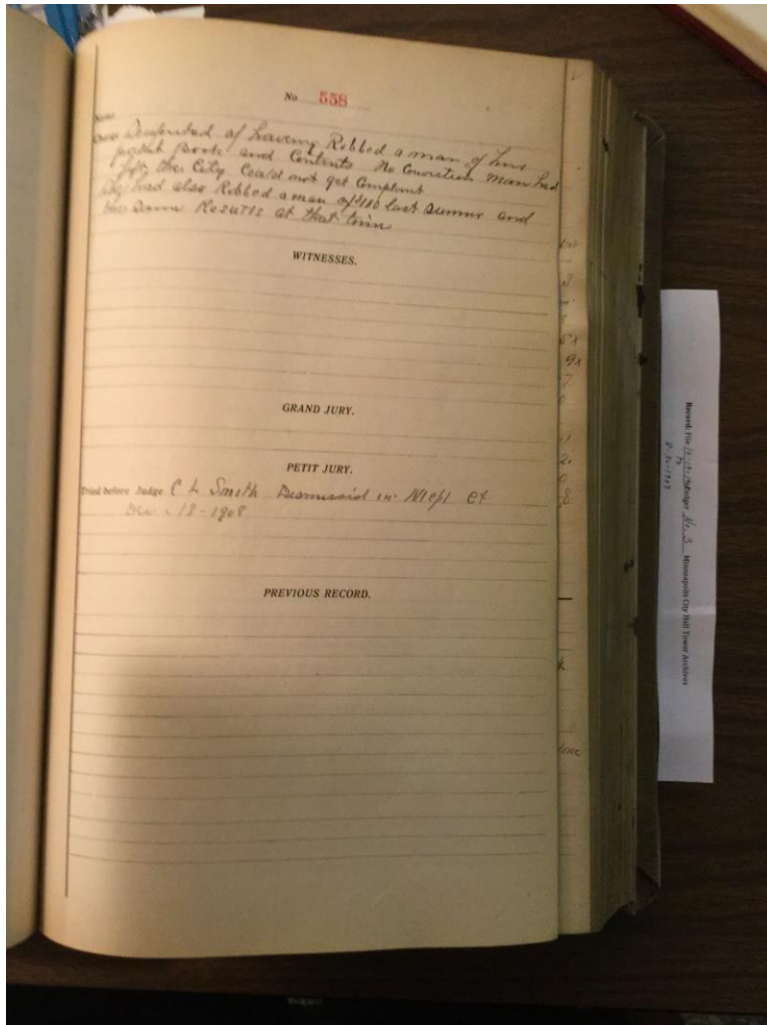 No. 558
Name
Charge of having Robbed a man of his
pocket Book and Contents No Conviction Man had
left the City Could not get Complaint
had also Robbed a man of $100 last summer and
the same Results at that time
WITNESSES.
GRAND JURY.
PETIT JURY.
Tried before Judge C L Smith Dismissed in Ct
Dec - 18 - 1908
PREVIOUS RECORD.
Record: File Ledger No. 3 Minneapolis City Hall Tower Archives
To